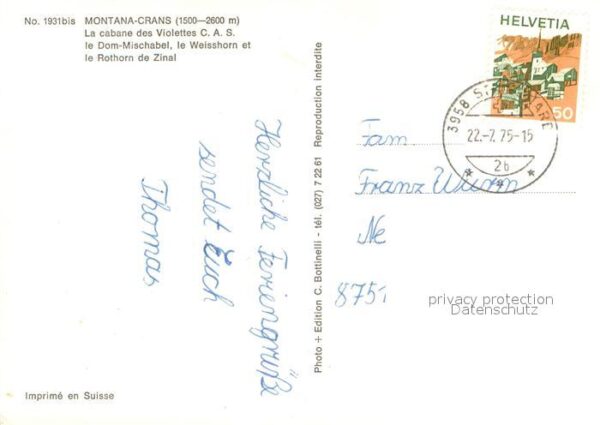 No. 1931bis MONTANA-CRANS (1500—2600 m)
La cabane des Violettes C. A. S.
le Dom-Mischabel, le Weisshorn et
le Rothorn de Zinal
Herzliche Feriengrüße
sendet Euch
Thomas
Imprimé en Suisse
Photo + Edition C. Bottinelli - tél. (027) 7 22 61 Reproduction interdite
HELVETIA
50
3958
22.-7.75-15
2b
Fam
Franz Wurm
Ne
875
privacy protection
Datenschutz